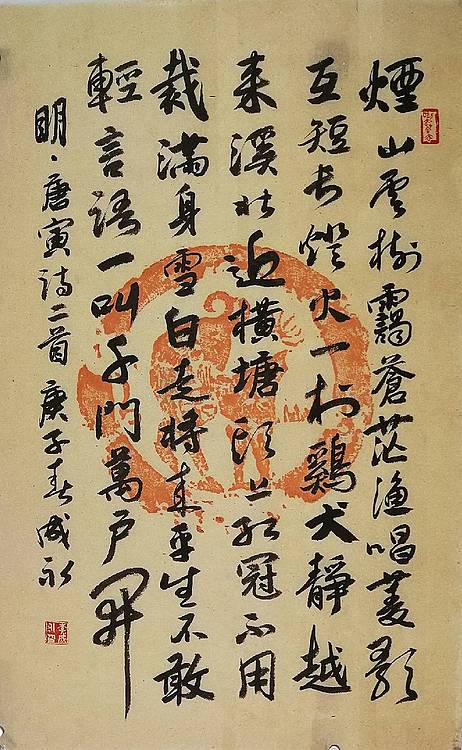 煙山雲樹靄蒼茫漁唱菱歌
互短長燈火一村鷄犬靜越
来溪北近橫塘頭上紅冠不用
裁滿身雪白走將来平生不敢
輕言語一叫千門萬户開
明·唐寅詩二首 庚子春 成永